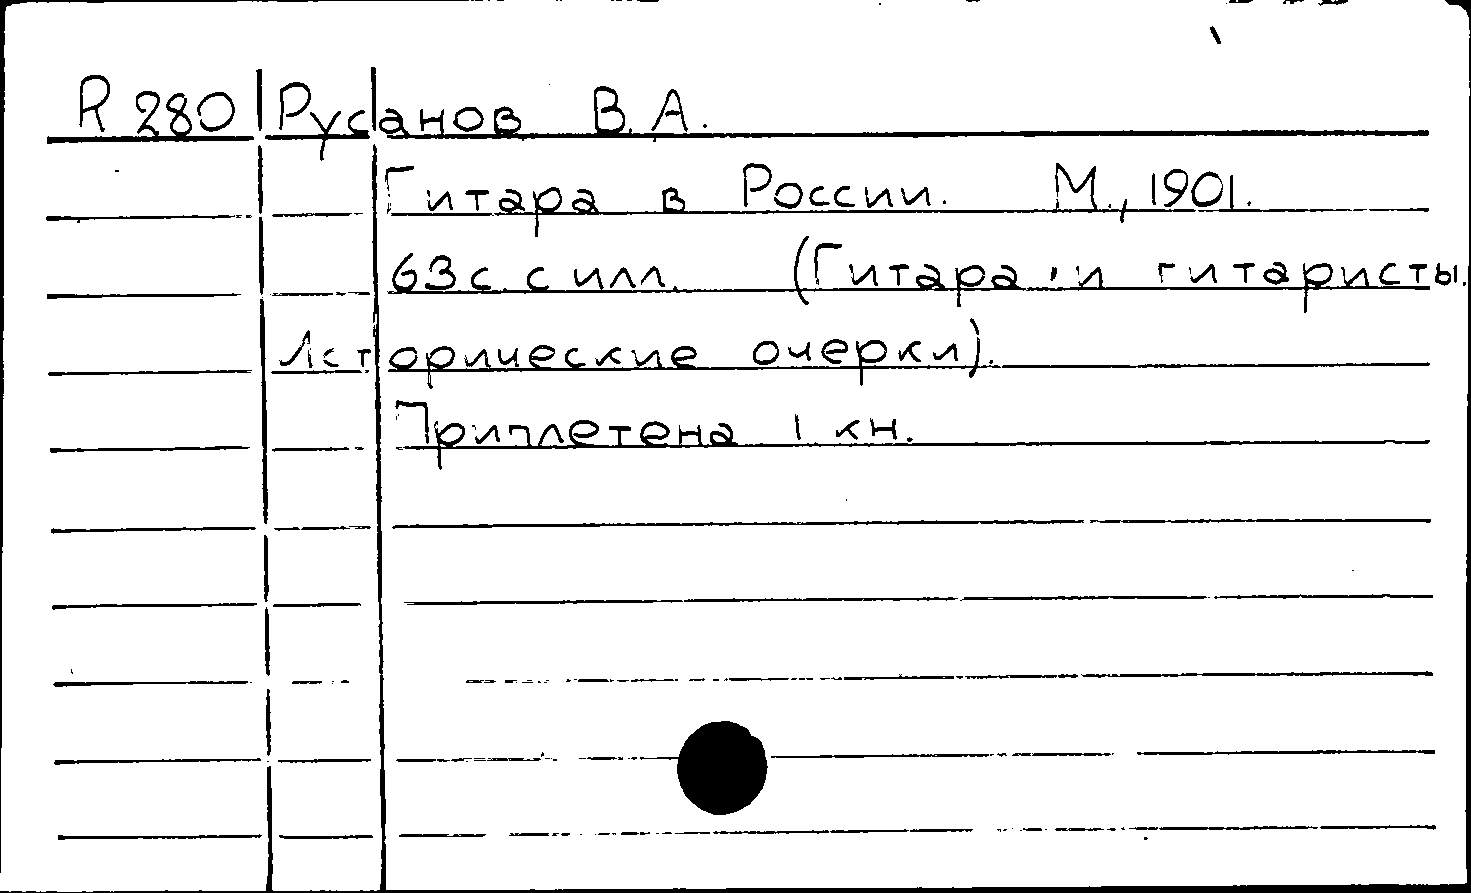 R 280 Русанов В. А.
Гитара в России. М., 1901.
63 с. с илл. (Гитара и гитаристы.
Исторические очерки).
Приплетена 1 кн.